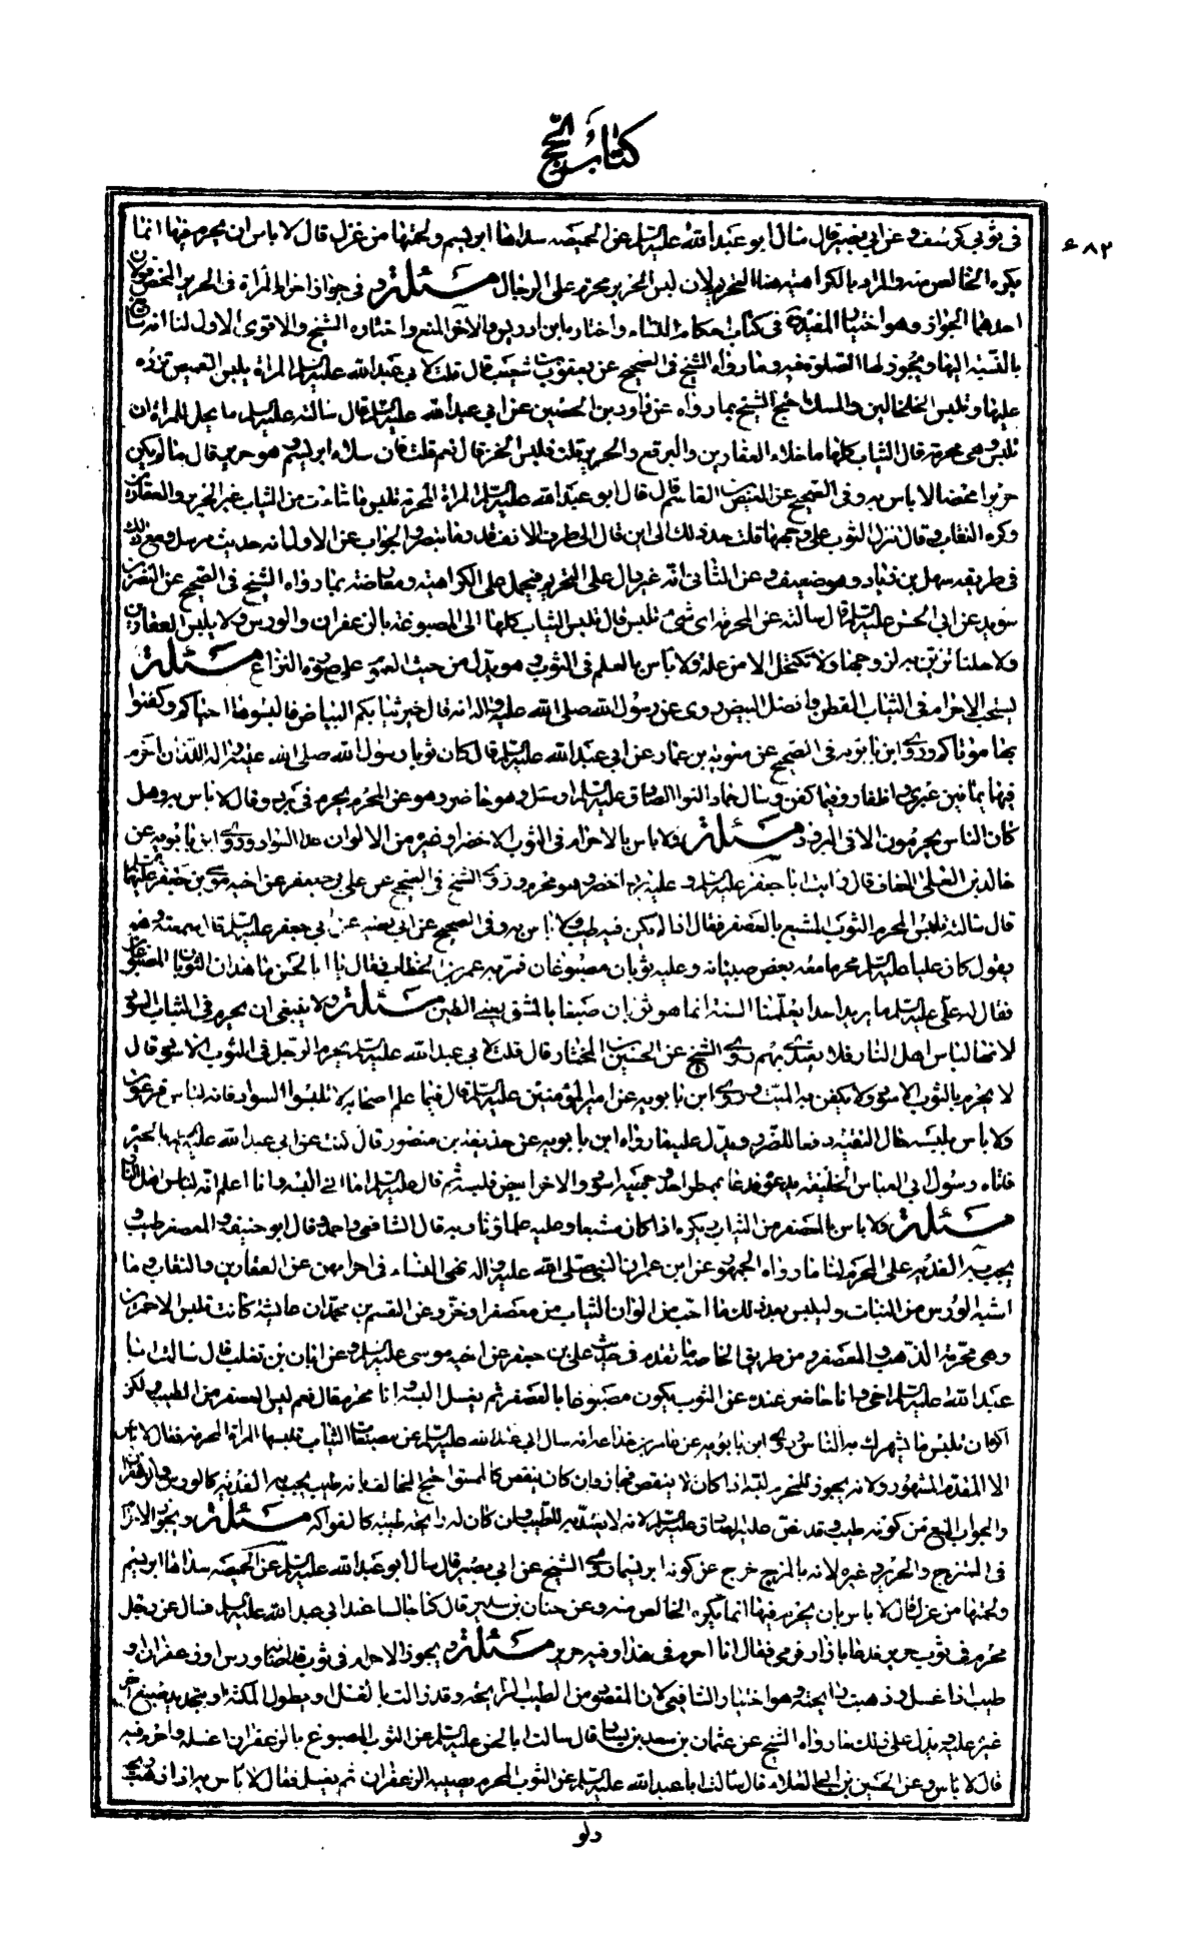 كتاب الحج
٦٨٢
في ثوبي كرسف وعن ابي بصير قال سال ابو عبد الله عليه السلام عن الخميصة سداها ابريسم ولحمتها من غزل قال لا باس ان يحرم فيها انما
يكره الخالص منه والمراد بالكراهية هنا التحريم لان لبس الحرير محرم على الرجال مسئلة وفي جواز احرام المراة في الحرير المحض قولان
احدهما الجواز وهو اختيار المفيد في كتاب احكام النساء واختاره ابن ادريس والاخر المنع واختاره الشيخ والاقوى الاول لنا انه
بالنسبة اليها ويجوز لها الصلوة فيه وما رواه الشيخ في الصحيح عن يعقوب بن شعيب قال قلت لابي عبد الله عليه السلام المراة يلبس القميص تزره
عليها وتلبس الخلخالين والمسك احتج الشيخ بما رواه عن داود بن الحصين عن ابي عبد الله عليه السلام قال سالته عليه السلام ما يحل للمراة ان
تلبس وهي محرمة قال الثياب كلها ما خلا القفازين والبرقع والحرير قلت فلبس الخز قال نعم قلت فان سداه ابريسم وهو حرير قال ما لم يكن
حريرا محضا لا باس به وفي الصحيح عن العيص بن القاسم قال قال ابو عبد الله عليه السلام المراة المحرمة تلبس ما شاءت من الثياب غير الحرير والقفازين
وكره النقاب وقال تنزل الثوب على وجهها قلت حد ذلك الى اين قال الى طرف الانف قدر ما تبصر والجواب عن الاول انه حديث مرسل ومع ذلك
في طريقه سهل بن زياد وهو ضعيف وعن الثاني انه غير دال على التحريم فيحمل على الكراهية ومعارضته بما رواه الشيخ في الصحيح عن النضر بن
سويد عن ابي الحسن عليه السلام قال سالته عن المحرمة اي شئ تلبس قال تلبس الثياب كلها الا المصبوغة بالزعفران والورس ولا يلبس القفازين
ولا حليا تتزين به لزوجها ولا تكتحل الا من علة ولا باس بالعلم في الثوب مسئلة
يستحب الاحرام في الثياب القطن وافضل البيض روى عن رسول الله صلى الله عليه واله انه قال خير ثيابكم البياض فالبسوها احياكم وكفنوا
بها موتاكم وروى ابن بابويه في الصحيح عن معوية بن عمار عن ابي عبد الله عليه السلام قال كان ثوبا رسول الله صلى الله عليه واله اللذان احرم
فيهما يمانيين عبري واظفار وفيهما كفن وسال حماد النوا الصادق عليه السلام او سئل وهو حاضر وهو عن المحرم يحرم في برد قال لا باس به وهل
كان الناس يحرمون الا في البرود مسئلة ولا باس بالاحرام في الثوب الاخضر وغيره من الالوان عدا السواد وروى ابن بابويه عن
خالد بن ابي العلا الخفاف قال رايت ابا جعفر عليه السلام وعليه برد اخضر وهو محرم وروى الشيخ في الصحيح عن علي بن جعفر عن اخيه موسى بن جعفر عليهما السلام
قال سالته يلبس المحرم الثوب المشبع بالعصفر فقال اذا لم يكن فيه طيب فلا باس به وفي الصحيح عن ابي بصير عن ابي جعفر عليه السلام قال سمعته وهو
يقول كان علي عليه السلام محرما معه بعض صبيانه وعليه ثوبان مصبوغان فمر به عمر بن الخطاب فقال يا ابا الحسن ما هذان الثوبان المصبوغان
فقال له علي عليه السلام ما يريد احدا يعلمنا السنة انما هو ثوبان صبغا بالمشق يعني الطين مسئلة ولا ينبغي ان يحرم في الثياب السود
لانها لباس اهل النار فلا يقتدى بهم روى الشيخ عن الحسين بن المختار قال قلت لابي عبد الله عليه السلام يحرم الرجل في الثوب الاسود قال
لا يحرم بالثوب الاسود ولا يكفن به الميت وروى ابن بابويه عن امير المؤمنين عليه السلام قال فيما علم اصحابه لا تلبسوا السواد فانه لباس فرعون
ولا باس بلبسه حال التقية دفعا للضرر ويدل عليه ما رواه ابن بابويه عن حذيفة بن منصور قال كنت عند ابي عبد الله عليه السلام بالحيرة
فاتاه رسول ابي العباس الخليفة يدعوه فدعا بمطر احد وجهيه اسود والاخر ابيض فلبسه ثم قال عليه السلام اما اني البسه وانا اعلم انه لباس اهل النار
مسئلة ولا باس بالمعصفر من الثياب ويكره اذا كان مشبعا وعليه علماؤنا وبه قال الشافعي واحمد وقال ابو حنيفة المعصفر طيب و
يجب به الفدية على المحرم لنا ما رواه الجمهور عن ابن عمر ان النبي صلى الله عليه واله نهى النساء في احرامهن عن القفازين والنقاب وما
اشبه الورس من النبات وليلبس بعد ذلك ما احب من الوان الثياب من معصفر او خز وعن القسم بن محمد ان عائشة كانت تلبس الاحمرين
وهي محرمة الذهب والمعصفر ومن طريق الخاصة ما تقدم في حديث علي بن جعفر عن اخيه موسى عليه السلام وعن ابان بن تغلب قال سال ابا
عبد الله عليه السلام اخي وانا حاضر عنده عن الثوب يكون مصبوغا بالعصفر ثم يغسل البسه وانا محرم قال نعم ليس العصفر من الطيب ولكن
اكره ان تلبس ما يشهرك به الناس وروى ابن بابويه عن عامر بن جذاعة انه سال ابي عبد الله عليه السلام عن مصبغات الثياب تلبسها المراة المحرمة فقال لا باس
الا المفدم المشهور ولانه يجوز للمحرم لبسه اذا كان لا ينفض فجاز وان كان ينفض كالمستوي احتج المخالف بانه طيب يجب به الفدية كالورس والزعفران
والجواب المنع من كونه طيبا وقد نص عليه الصادق عليه السلام ولانه لا يقصد به للطيب وان كان له رايحة طيبة كالفواكه مسئلة ويجوز الاحرام
في الممتزج بالحرير وغيره لانه بالمزج خرج عن كونه ابريسما روى الشيخ عن ابي بصير قال سال ابو عبد الله عليه السلام عن الخميصة سداها ابريسم
ولحمتها من غزل قال لا باس بان يحرم فيها انما يكره الخالص منه وعن حنان بن سدير قال كنا جالسا عند ابي عبد الله عليه السلام فسال عن رجل
محرم في ثوب حرير فدعا بازار قرقبي فقال انا احرم في هذا وفيه حرير مسئلة ويجوز الاحرام في ثوب قد اصابه ورس او زعفران او
طيب اذا غسل وذهبت رايحته وهو اختيار الشافعي لان المقصود من الطيب الرايحة وقد زالت بالغسل او بطول المكث او بتجديد صبغ اخر
غيره عليه ويدل على ذلك ما رواه الشيخ عن عثمان بن سعيد بن يسار قال سالت ابا الحسن عليه السلام عن الثوب المصبوغ بالزعفران اغسله واحرم فيه
قال لا باس وعن الحسين بن ابي العلا قال سالت ابا عبد الله عليه السلام عن الثوب المحرم يصيبه الزعفران ثم يغسل فقال لا باس به اذا ذهب ريحه
ولو